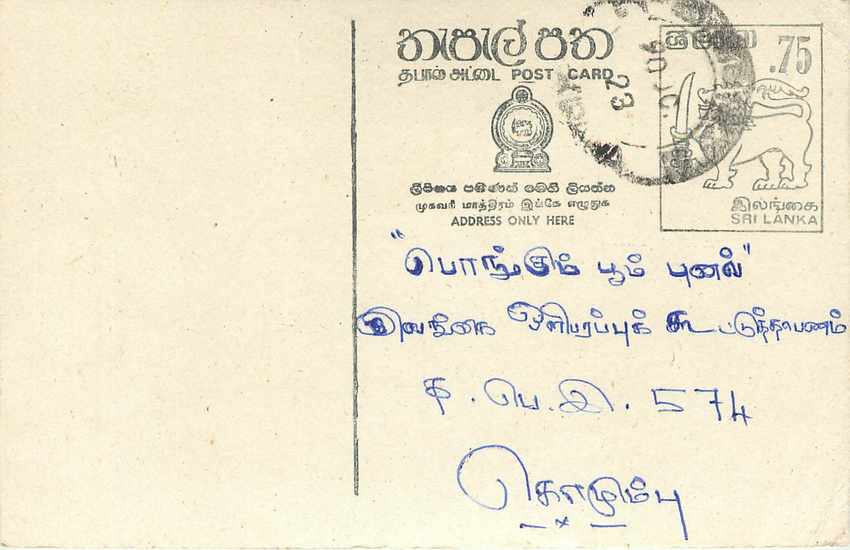 තැපැල් පත
தபால் அட்டை POST CARD
ලිපිනය පමණක් මෙහි ලියන්න
முகவரி மாத்திரம் இங்கே எழுதுக
ADDRESS ONLY HERE
ශ්‍රී ලංකා
.75
இலங்கை
SRI LANKA
23
"பொங்கும் பூம் புனல்"
இலங்கை ஒளிபரப்புக் கூட்டுத்தாபணம்
த. பெ. இ. 574
கொழும்பு